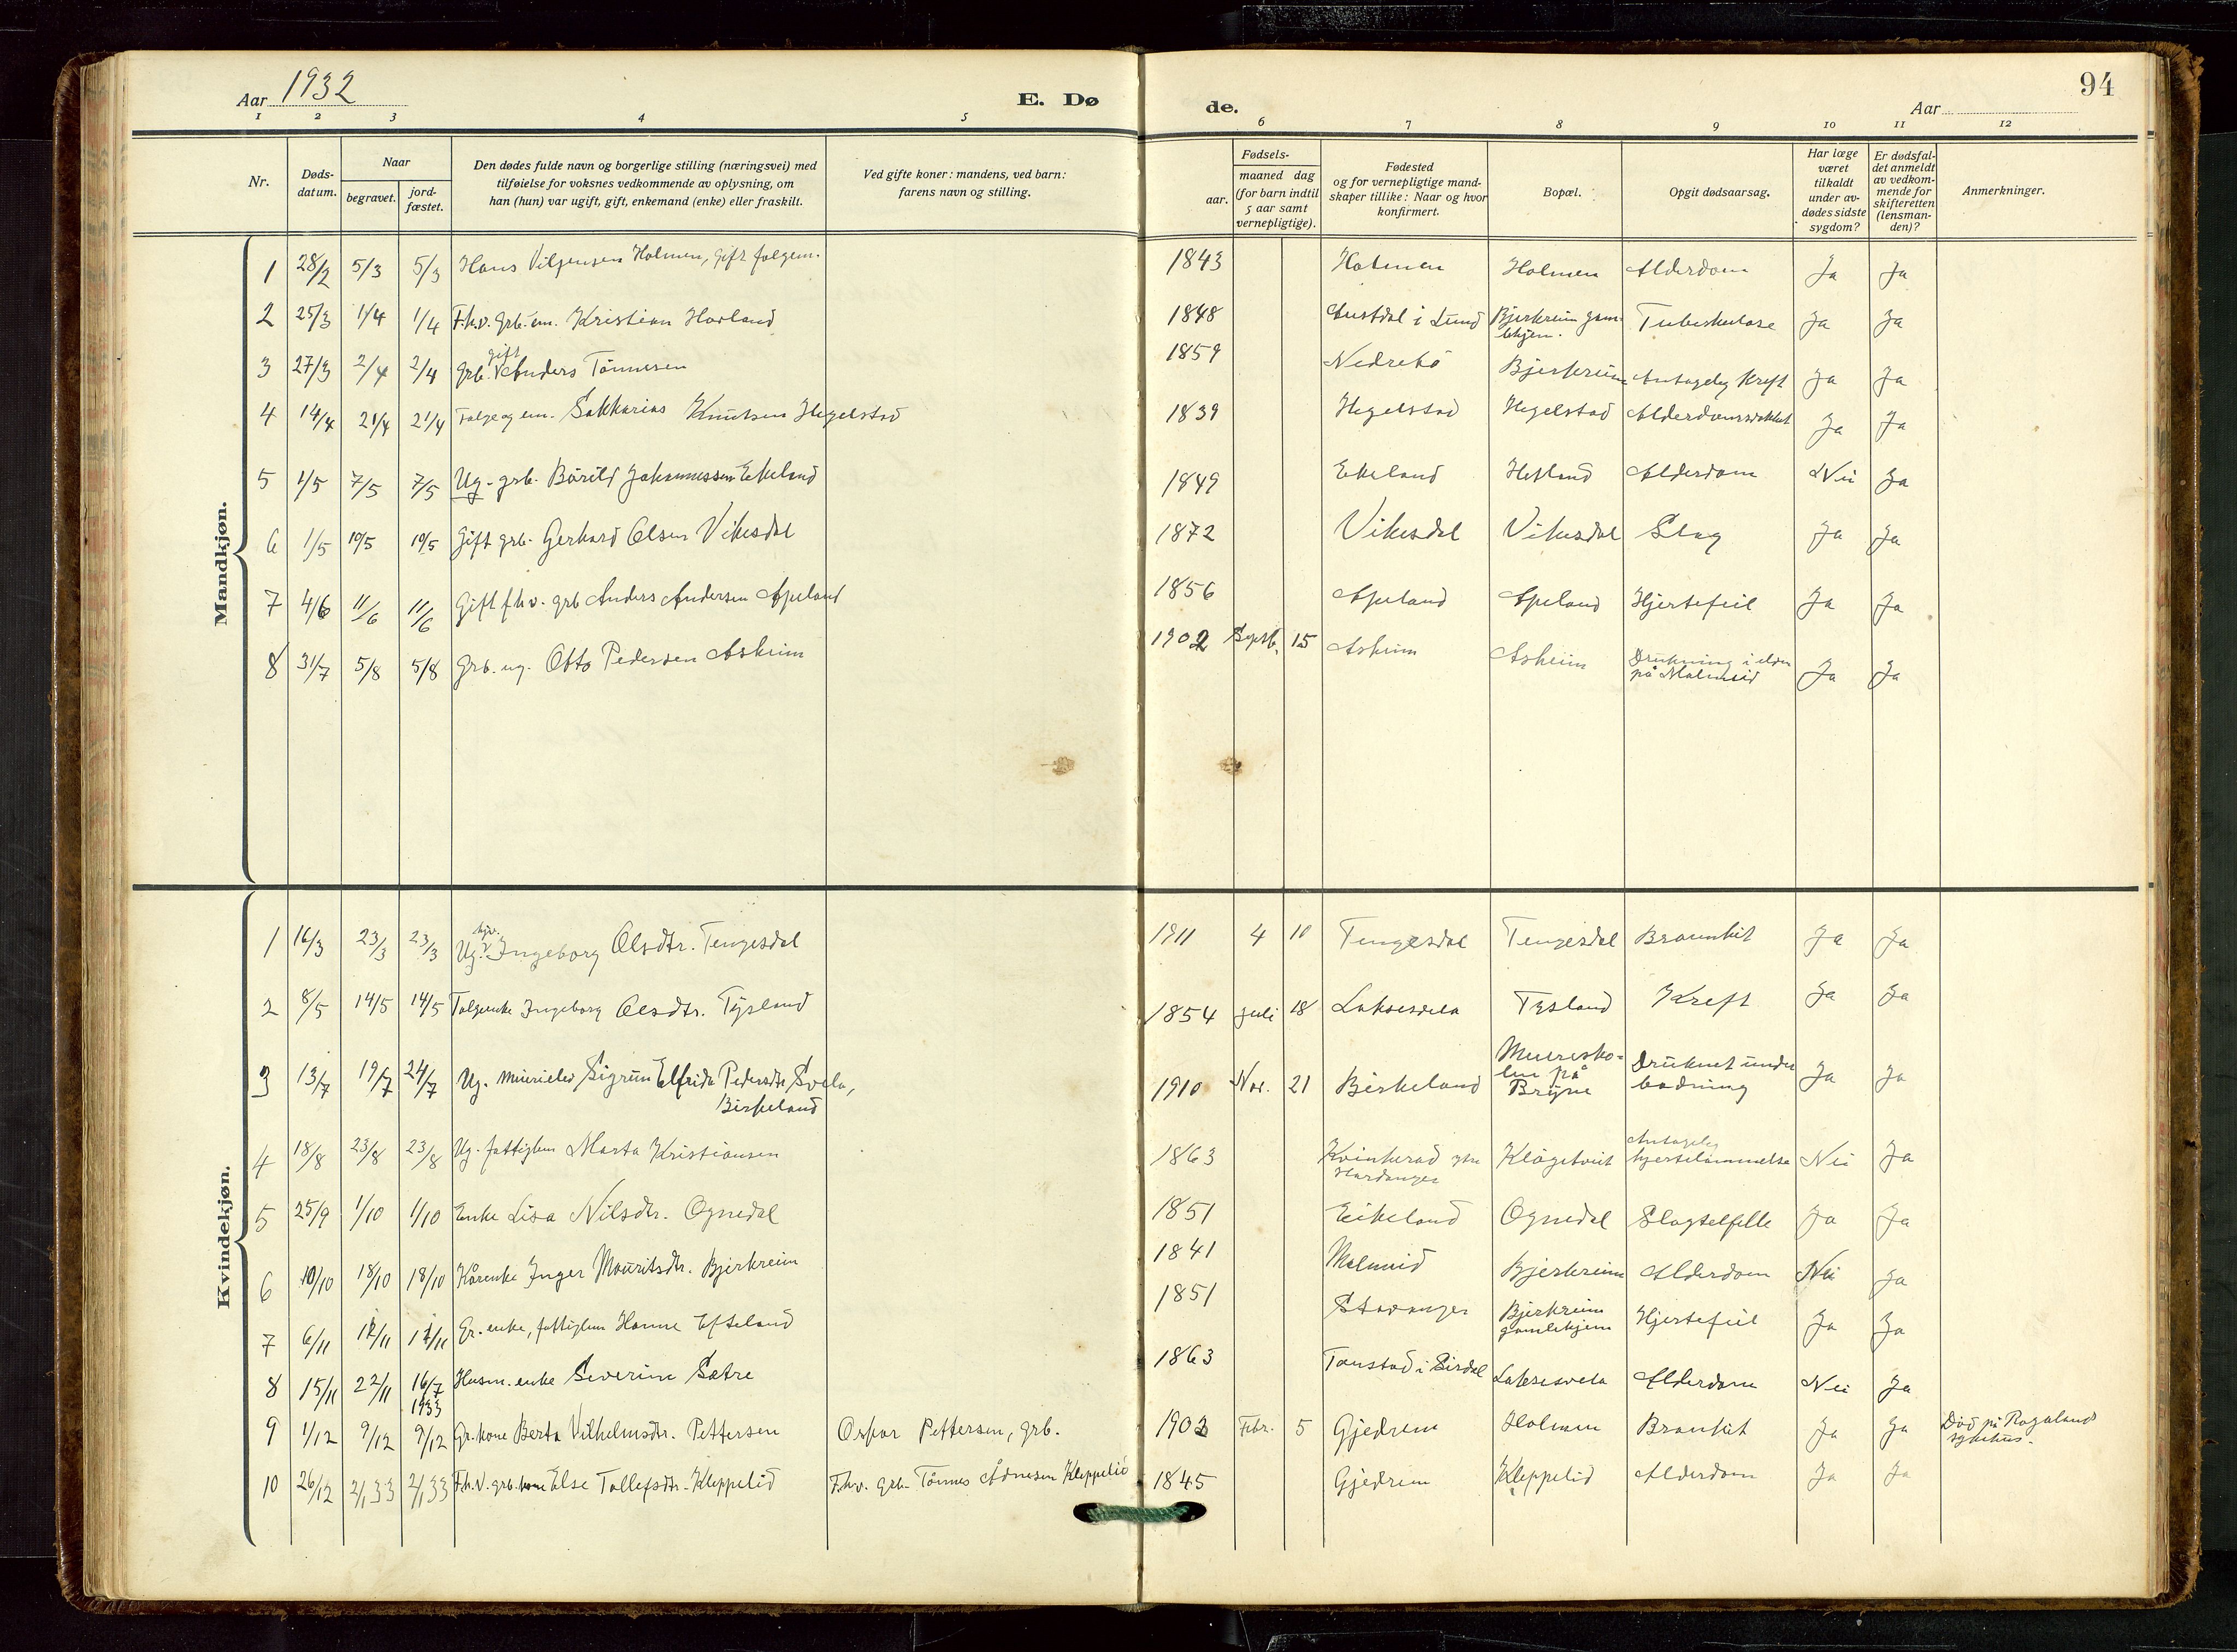 Aar 1932
E. Dø
de.
Aar
94
1 2 3 4 5 6 7 8 9 10 11 12
Nr.
Døds-
datum.
Naar
begravet.
jord-
fæstet.
Den dødes fulde navn og borgerlige stilling (næringsvei) med
tilføielse for voksnes vedkommende av oplysning, om
han (hun) var ugift, gift, enkemand (enke) eller fraskilt.
Ved gifte koner: mandens, ved barn:
farens navn og stilling.
Fødsels-
aar.
maaned dag
(for barn indtil
5 aar samt
vernepligtige).
Fødested
og for vernepligtige mand-
skaper tillike: Naar og hvor
konfirmert.
Bopæl.
Opgit dødsaarsag.
Har læge
været
tilkaldt
under av-
dødes sidste
sygdom?
Er dødsfal-
det anmeldt
av vedkom-
mende for
skifteretten
(lensman-
den)?
Anmerkninger.
Mandkjøn.
1 28/2 5/3 5/3 Hans Vilhelmsen Holmen, gift folgem. 1843 Holmen Holmen Alderdom Ja Ja
2 25/3 1/4 1/4 F.h.v. grb. em. Kristian Hovland 1848 Eustdal i Lund Bjerkreim gam-
lehjem. Tuberkulose Ja Ja
3 27/3 2/4 2/4 grb. gift Anders Tønnesen 1859 Nedrebø Bjerkreim Antagelig kreft Ja Ja
4 14/4 21/4 21/4 Folge og em. Sakkarias Knutsen Hegelstad 1839 Hegelstad Hegelstad Alderdomssvakhet Ja Ja
5 1/5 7/5 7/5 Ug. grb. Bårild Johannessen Ekeland 1849 Ekeland Hetland Alderdom Nei Ja
6 1/5 10/5 10/5 Gift grb. Gerhard Olsen Vikesdal 1872 Vikesdal Vikesdal Slag Ja Ja
7 4/6 11/6 11/6 Gift f.h.v. grb Anders Andersen Apeland 1856 Apeland Apeland Hjertefeil Ja Ja
8 31/7 5/8 5/8 Grb. ug. Otto Pedersen Asheim 1902 Septb. 15 Asheim Asheim Drukning i elven
på Malmeid Ja Ja
Kvindekjøn.
1 16/3 23/3 23/3 Ug. hjv. Ingeborg Olsdtr. Tengesdal 1911 4 10 Tengesdal Tengesdal Bronkit Ja Ja
2 8/5 14/5 14/5 Folgeenke Ingeborg Olsdtr. Tysland 1854 Juli 18 Laksesvela Tysland Kreft Ja Ja
3 13/7 19/7 24/7 Ug. meierielev Sigrun Elfrida Pedersdtr. Svela,
Birkeland 1910 Nov. 21 Birkeland Meierisko-
len på
Bryne Druknet under
badning Ja Ja
4 18/8 23/8 23/8 Ug. fattiglem Marta Kristiansen 1863 Kvinherad ytre
Hardanger Klågetveit Antagelig
hjertelammelse Nei Ja
5 25/9 1/10 1/10 Enke Lisa Nilsdtr. Ognedal 1851 Eikeland Ognedal Slagtelfelle Ja Ja
6 10/10 18/10 18/10 Kårenke Inger Mauritsdtr. Bjerkreim 1841 Malmeid Bjerkreim Alderdom Nei Ja
7 6/11 12/11 12/11 Gr. enke, fattiglem Hanne Efteland 1851 Stavanger Bjerkreim
gamlehjem Hjertefeil Ja Ja
8 15/11 22/11 16/7
1933 Husm. enke Severine Sætre 1863 Tonstad i Sirdal Laksesvela Alderdom Nei Ja
9 1/12 9/12 9/12 Gr. kone Berta Vilhelmsdtr. Pettersen Oskar Pettersen, grb. 1903 Febr. 5 Gjedrem Holmen Bronkit Ja Ja Død på Rogalands
sykehus.
10 26/12 2/1 33 2/1 33 F.h.v. grb. kone Else Tollefsdtr. Kleppelid F.h.v. grb. Tønnes Ådnesen Kleppelid 1845 Gjedrem Kleppelid Alderdom Ja Ja